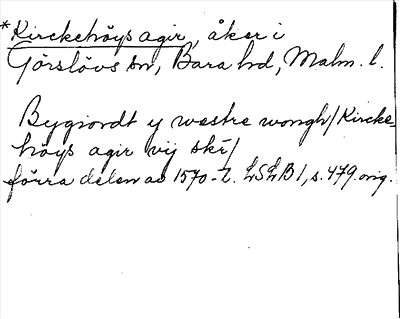 *Kirckehöys agir, åker i
Görslövs sn, Bara hd, Malm. l.
Bygiordt y westre wongh/Kircke-
höys agir vij skr/
förra delen av 1570-t. LSLB 1, s. 479. orig.